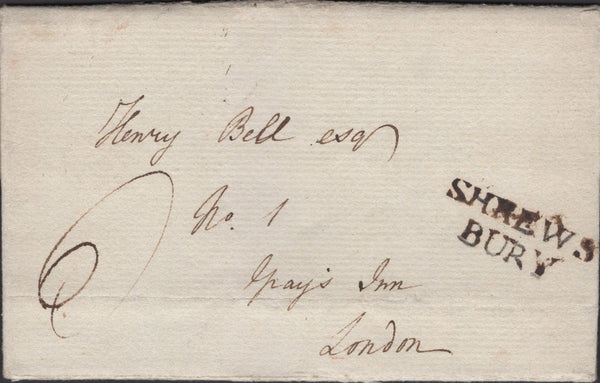 Henry Bell esq
No. 1
Grays Inn
London
6
SHREWS
BURY